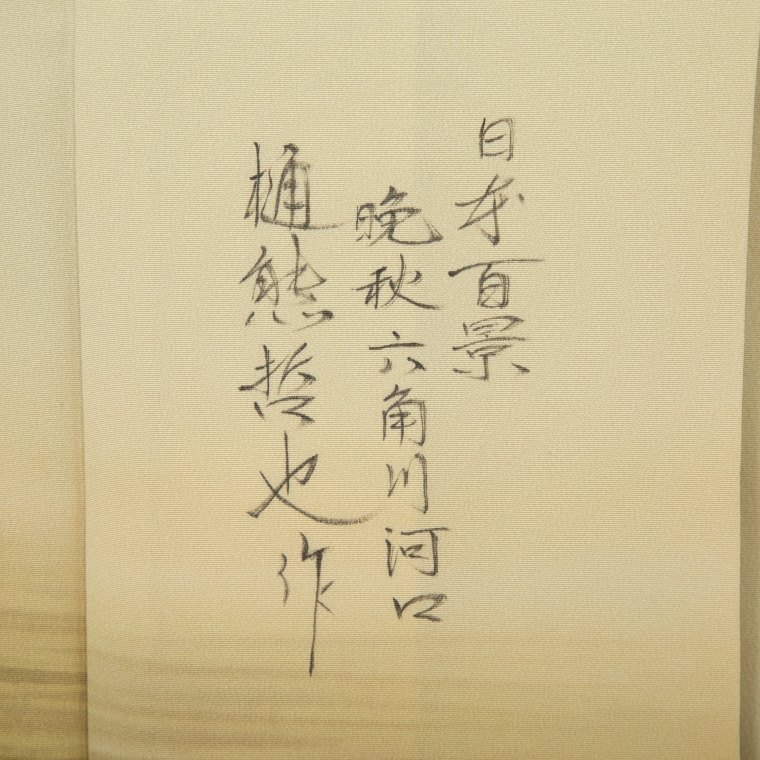 日本百景
晩秋六角川河口
樋熊哲也作